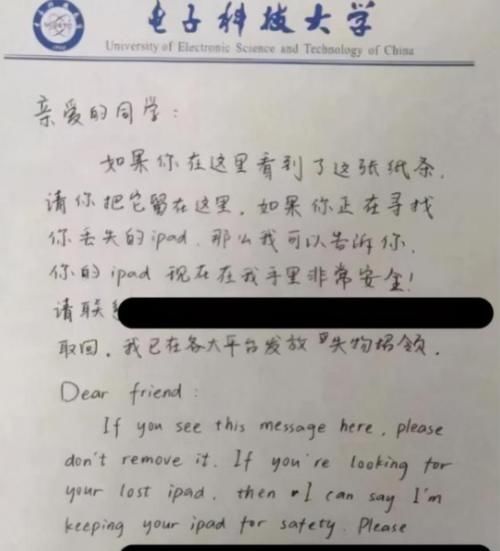 电子科技大学
University of Electronic Science and Technology of China
亲爱的同学：
如果你在这里看到了这张纸条，
请你把它留在这里，如果你正在寻找
你丢失的ipad，那么我可以告诉你，
你的ipad现在在我手里非常安全！
请联系
取回，我已在各大平台发放失物招领．
Dear friend：
If you see this message here, please
don't remove it. If you're looking for
your lost ipad, then I can say I'm
keeping your ipad for safety. Please